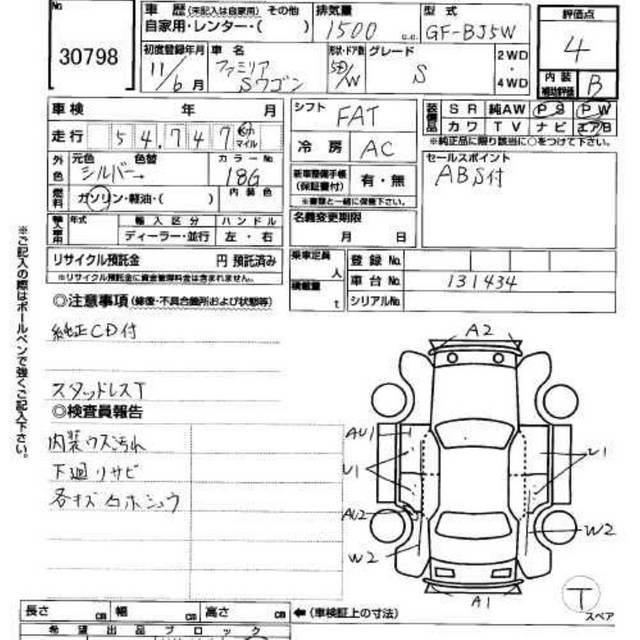 No.
30798
車歴 (未記入は自家用) その他
自家用・レンター・( )
排気量
1500 c.c.
型式
GF-BJ5W
評価点
4
内装
補助評価
B
初度登録年月
11/6月
車名
ファミリア
Sワゴン
形状・ドア数
5D/W
グレード
S
2WD
・
4WD
車検 年 月
走行 54,747 km マイル
外色
元色 色替
シルバー→
カラーNo.
18G
燃料
ガソリン・軽油・( )
内装色
輸入車用
年式
輸入区分
ディーラー・並行
ハンドル
左・右
リサイクル預託金 円 預託済み
※リサイクル預託金に資金管理料金は含まれません。
シフト FAT
冷房 AC
新車整備手帳
(保証書付)
有・無
※書類と一緒に保管下さい。
名義変更期限
月 日
乗車定員
人
積載量
t
装備品
SR 純AW PS PW
カワ TV ナビ エアB
※純正品に限り該当に○をつけて下さい。
セールスポイント
ABS付
登録No.
車台No. 131434
シリアルNo.
※ご記入の際はボールペンで強くご記入下さい。
◎注意事項(修復・不具合箇所および状態等)
純正CD付
スタッドレスT
◎検査員報告
内装ウス汚れ
下廻りサビ
各キズ凸ホシュウ
A2
AU1
U1
AU2
W2
U1
W2
A1
T
スペア
長さ cm 幅 cm 高さ cm ←(車検証上の寸法)
希望出品ブロック